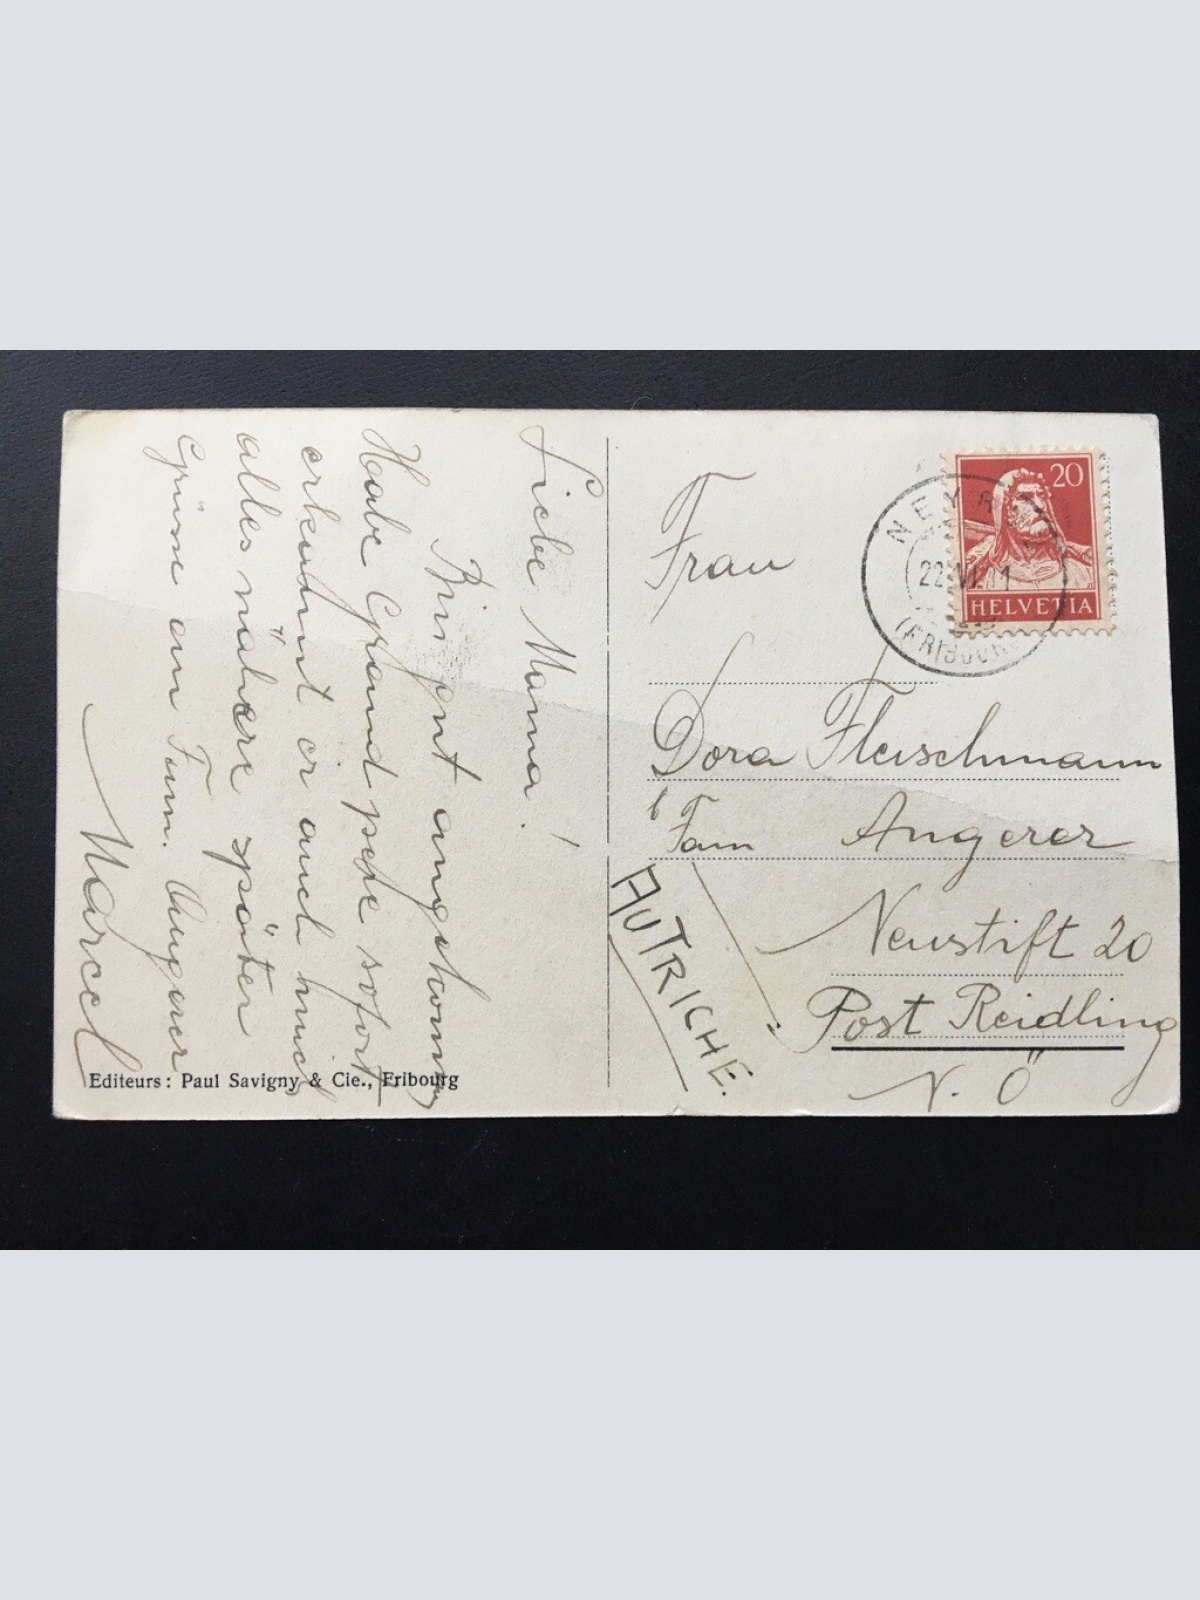 Liebe Mama!
Bin gut angekommen
Habe Grand père sofort
erkannt er auch mich
alles nähere später
Grüsse an Fam. Angerer
Marcel
Editeurs: Paul Savigny & Cie., Fribourg
20
HELVETIA
22.VI.
(FRIBOURG)
Frau
Dora Fleischmann
b Fam Angerer
Neustift 20
Post Reidling
N. Ö
AUTRICHE.